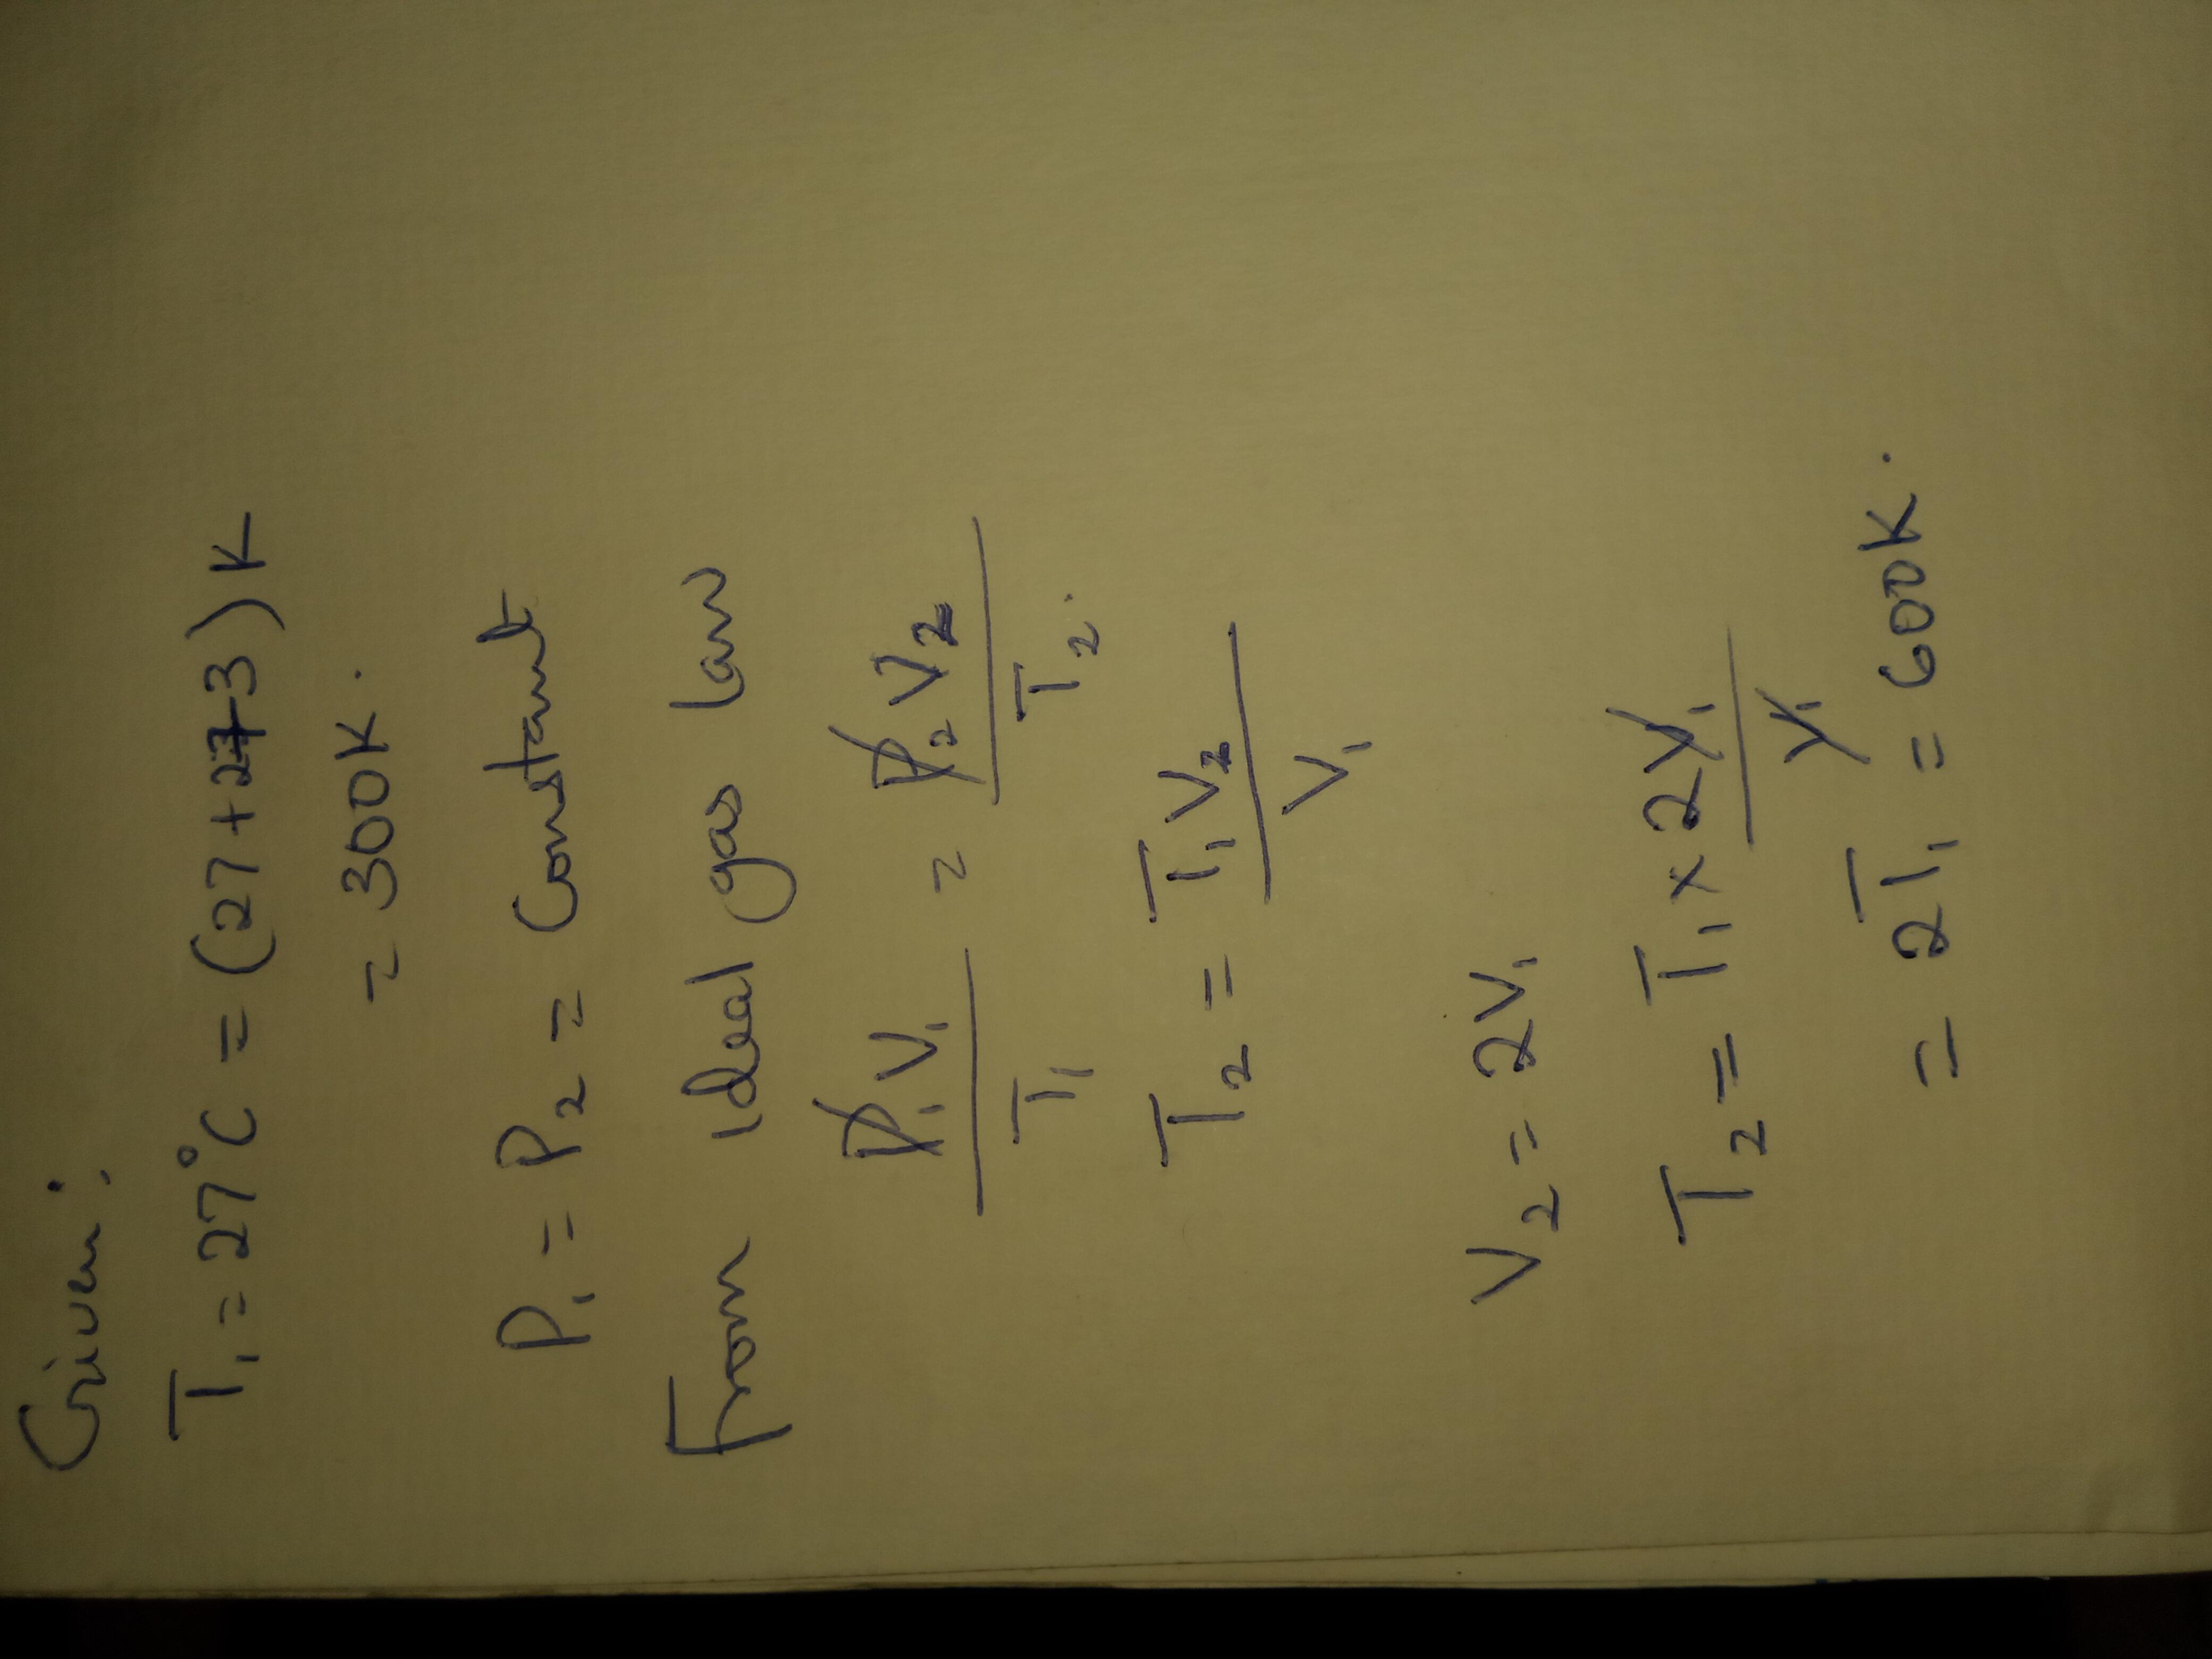 Given:
T₁ = 27°C = (27+273)K
= 300K.
P₁ = P₂ = Constant
From Ideal gas law
P₁V₁/T₁ = P₂V₂/T₂.
T₂ = T₁V₂/V₁
V₂ = 2V₁
T₂ = T₁ × 2V₁/V₁
= 2T₁ = 600K.